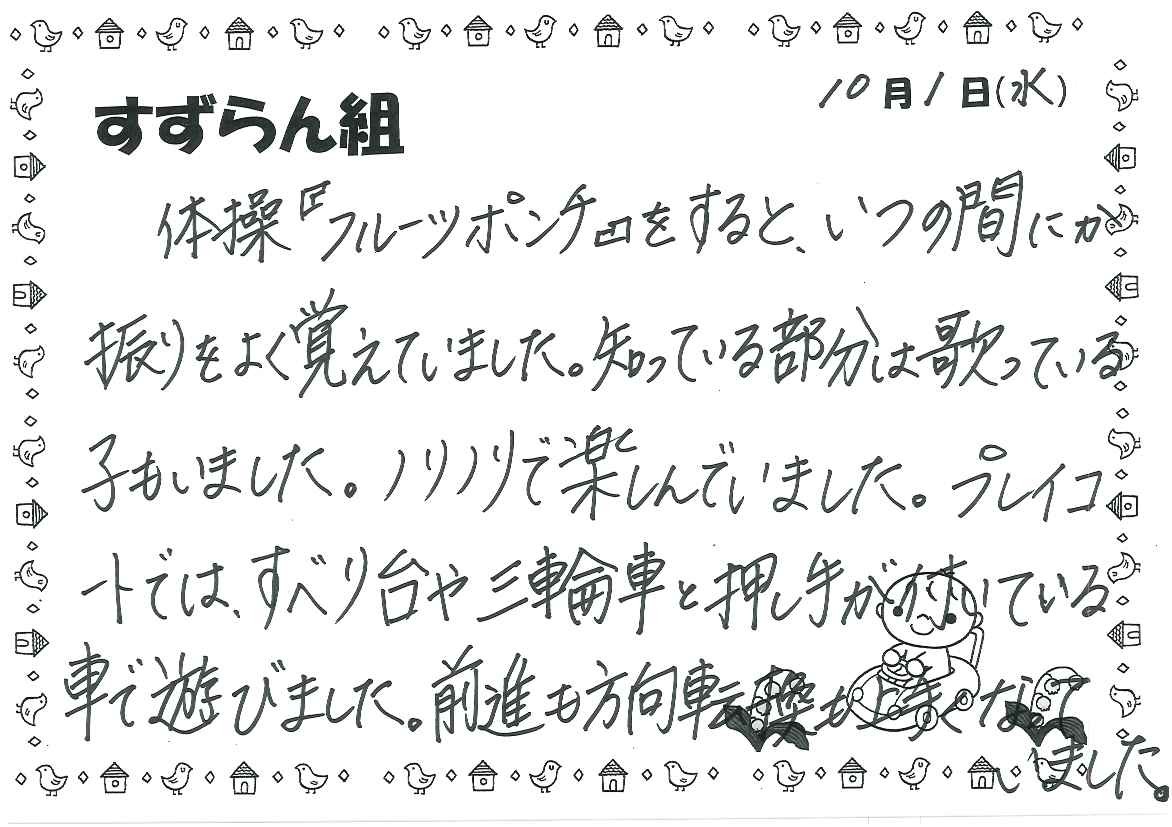 すずらん組
10月1日(水)
体操『フルーツポンチ』をすると、いつの間にか
振りをよく覚えていました。知っている部分は歌っている
子もいました。ノリノリで楽しんでいました。プレイコ
ートでは、すべり台や三輪車と押し手が付いている
車で遊びました。前進も方向転換も上手くなって
いました。